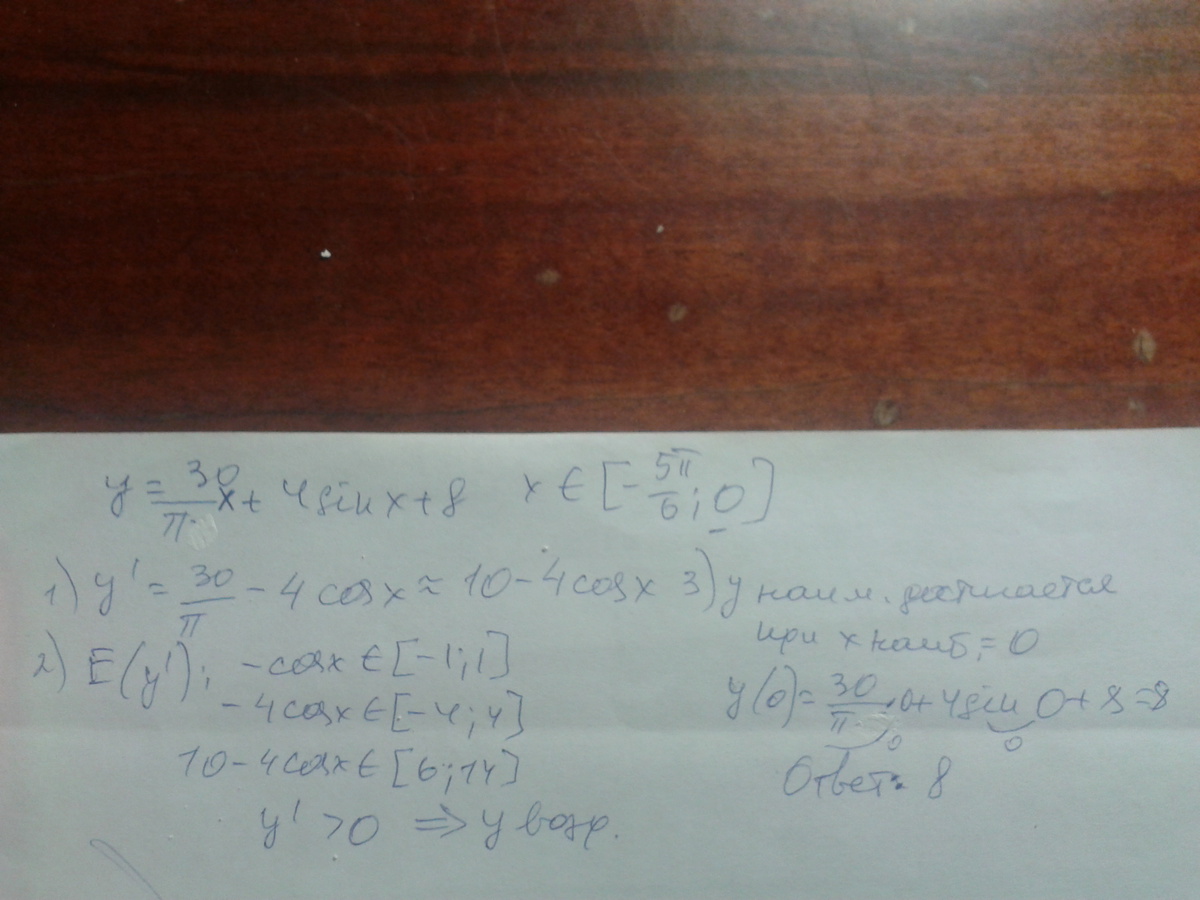 y = 30/π x + 4 sin x + 8   x ∈ [-5π/6; 0]
1) y' = 30/π - 4 cos x ≈ 10 - 4 cos x
2) E(y'): -cos x ∈ [-1; 1]
-4 cos x ∈ [-4; 4]
10 - 4 cos x ∈ [6; 14]
y' > 0 ⇒ y возр.
3) y наим. достигается
при x наиб. = 0
y(0) = 30/π · 0 + 4 sin 0 + 8 = 8
0 0
Ответ: 8